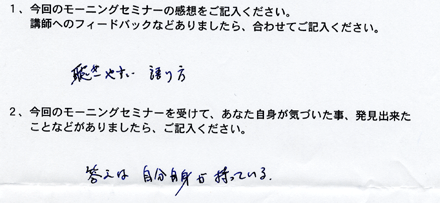 1、今回のモーニングセミナーの感想をご記入ください。
講師へのフィードバックなどありましたら、合わせてご記入ください。
聴きやすい 語り方
2、今回のモーニングセミナーを受けて、あなた自身が気づいた事、発見出来た
ことなどがありましたら、ご記入ください。
答えは 自分自身が 持っている.